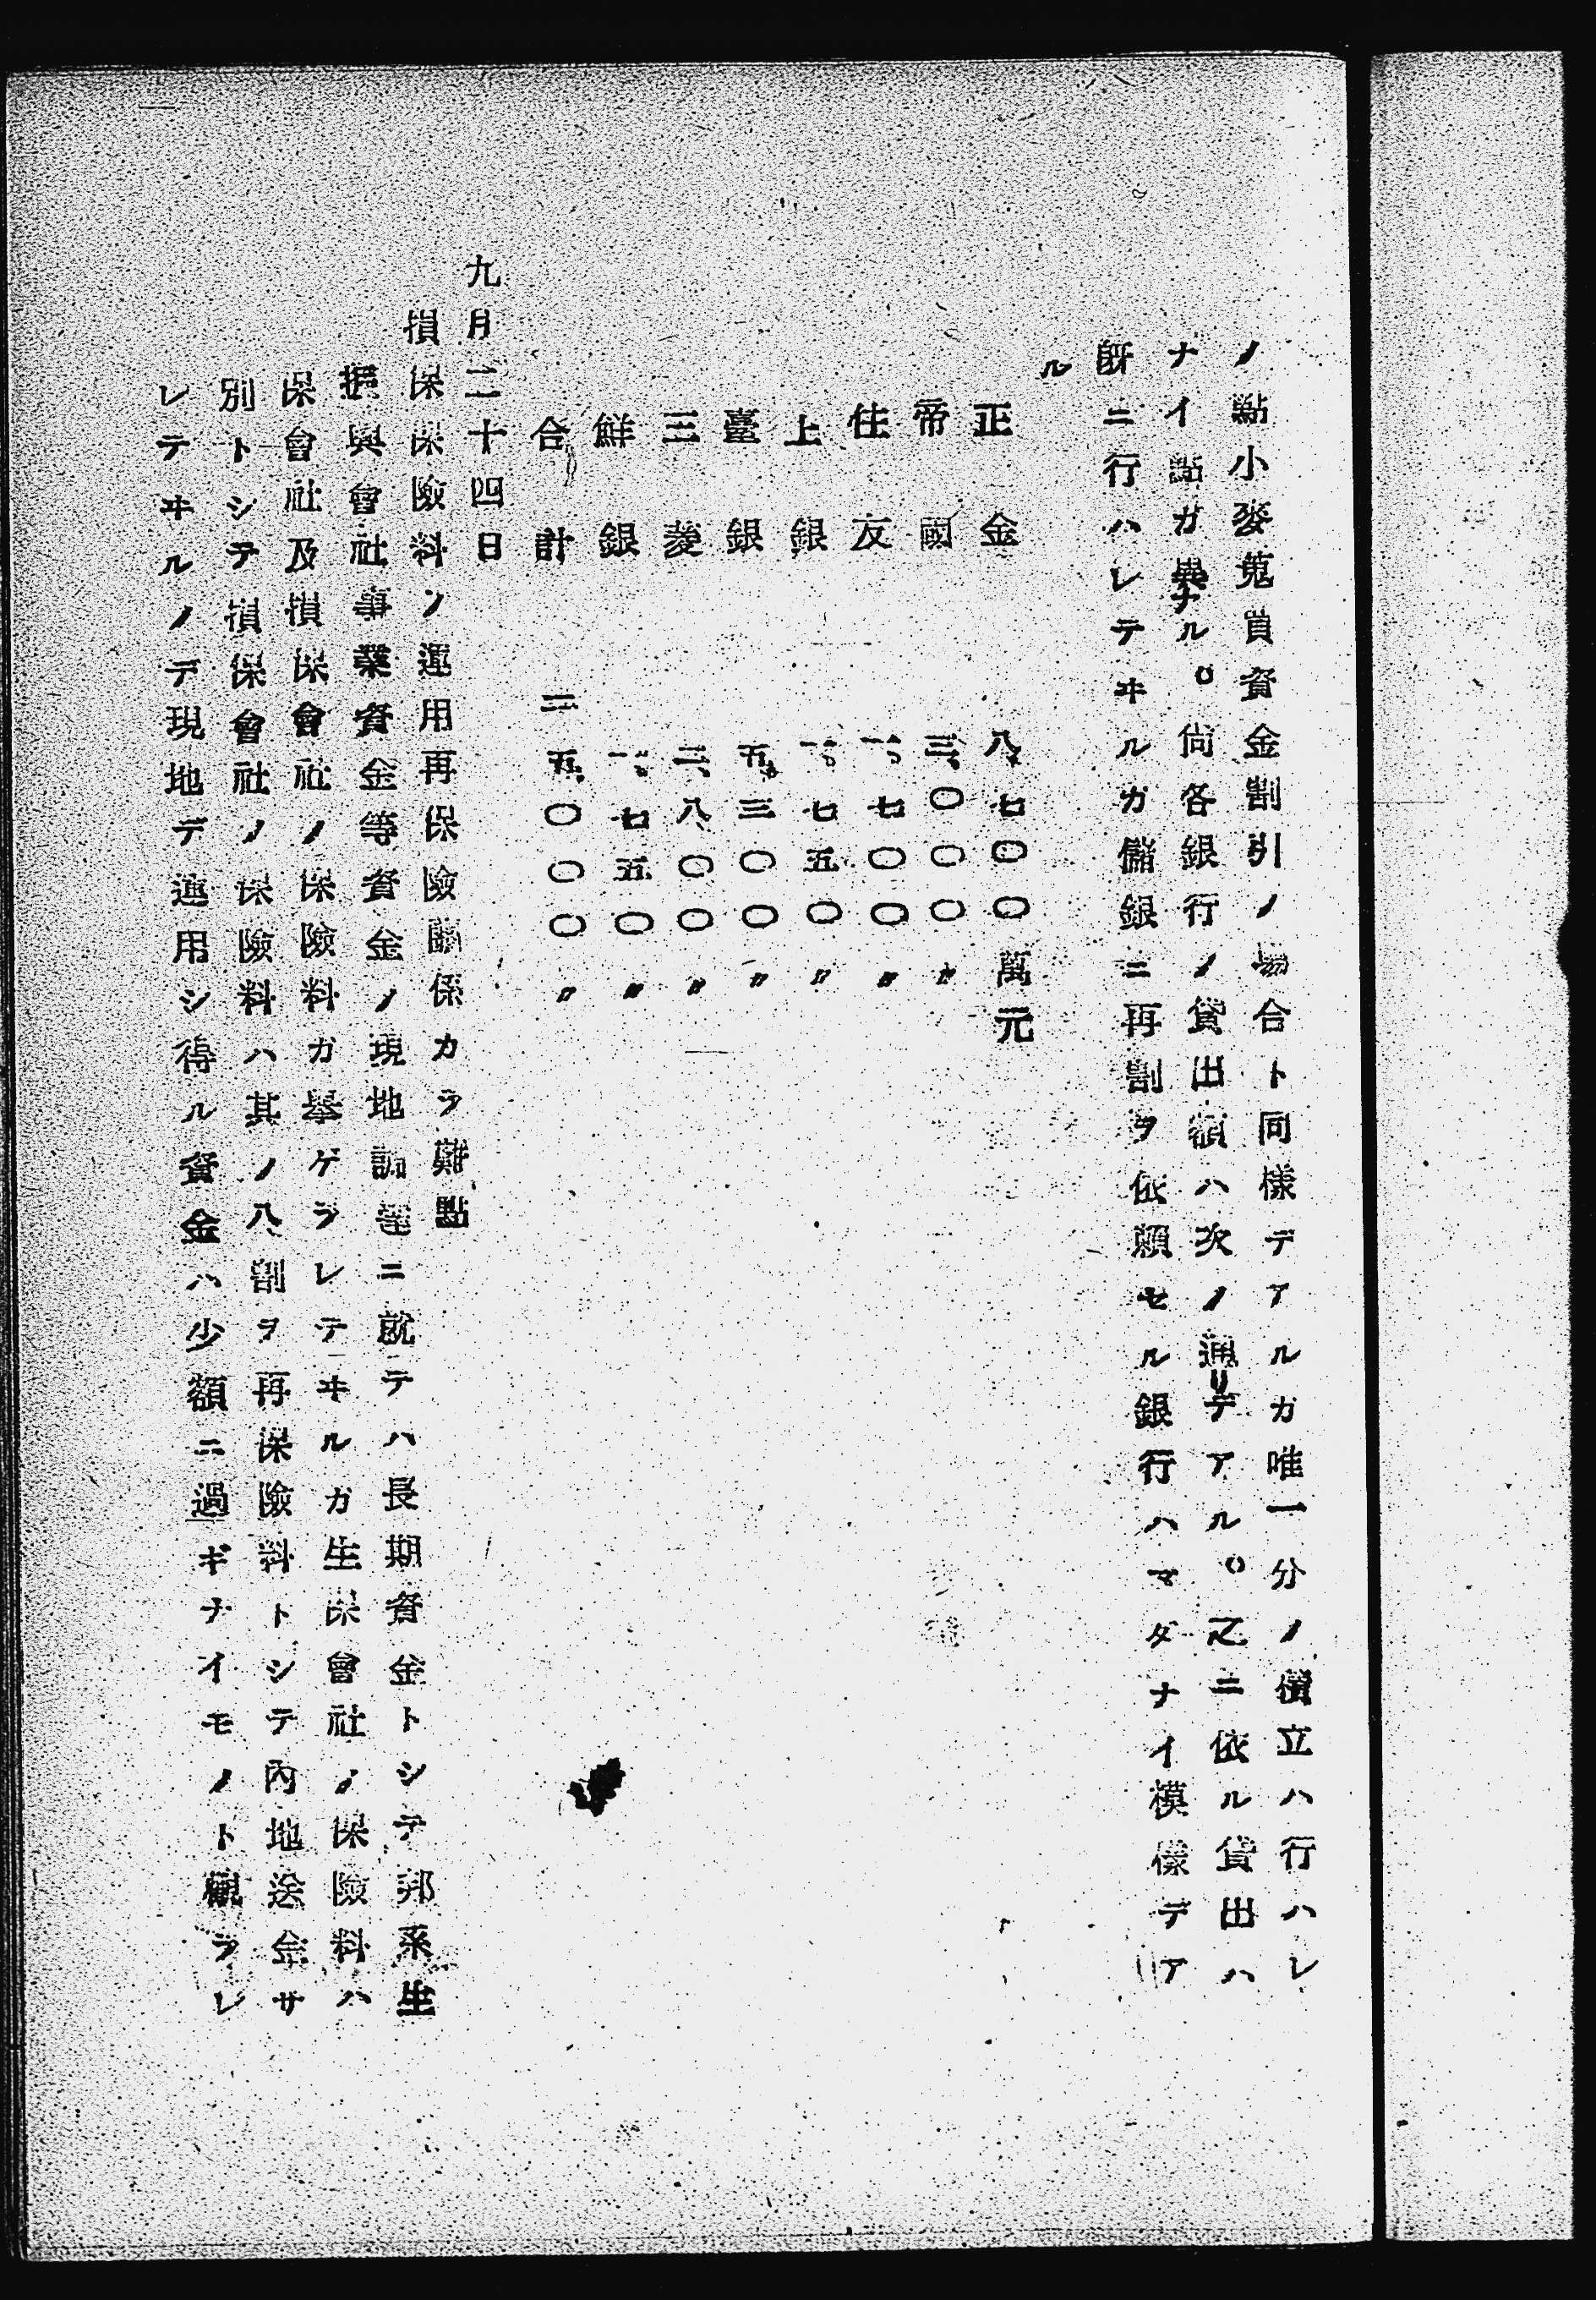 ノ點小麥蒐買資金割引ノ場合ト同樣デアルガ唯一分ノ積立ハ行ハレ
ナイ點ガ異ナル。尙各銀行ノ貸出額ハ次ノ通リデアル。之ニ依ル貸出ハ
既ニ行ハレテヰルガ儲銀ニ再割ヲ依賴セル銀行ハマダナイ模樣デア
ル
正金 八、七〇〇萬元
帝國 三、〇〇〇〃
住友 一、七〇〇〃
上銀 一、七五〇〃
臺銀 五、三〇〇〃
三菱 二、八〇〇〃
鮮銀 一、七五〇〃
合計 二五、〇〇〇〃
九月二十四日
損保保險料ノ運用再保險關係カラ難點
振興會社事業資金等資金ノ現地調達ニ就テハ長期資金トシテ邦系生
保會社及損保會社ノ保險料ガ擧ゲラレテヰルガ生保會社ノ保險料ハ
別トシテ損保會社ノ保險料ハ其ノ八割ヲ再保險料トシテ內地送金サ
レテヰルノデ現地デ運用シ得ル資金ハ少額ニ過ギナイモノト觀ラレ